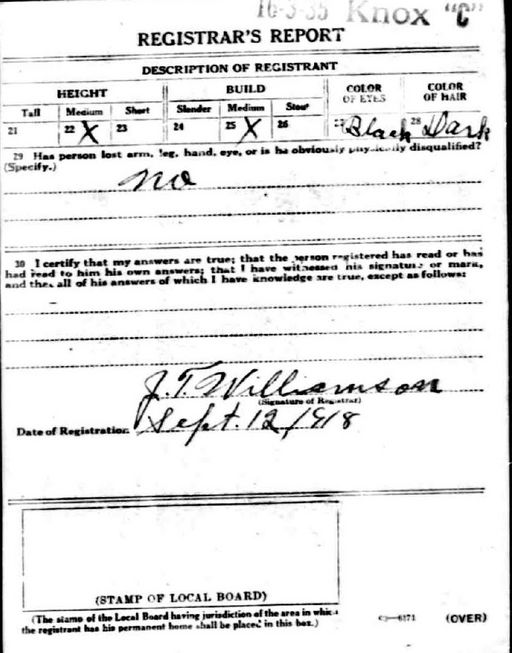 16-3-35 Knox "C"
REGISTRAR'S REPORT
DESCRIPTION OF REGISTRANT
HEIGHT BUILD COLOR OF EYES COLOR OF HAIR
Tall Medium Short Slender Medium Stout
21 22 X 23 24 25 X 26 27 Black 28 Dark
29 Has person lost arm, leg, hand, eye, or is he obviously physically disqualified?
(Specify.)
no
30 I certify that my answers are true; that the person registered has read or has
had read to him his own answers; that I have witnessed his signature or mark,
and that all of his answers of which I have knowledge are true, except as follows:
J. T. Williamson
(Signature of Registrar)
Date of Registration Sept. 12 1918
(STAMP OF LOCAL BOARD)
(The stamp of the Local Board having jurisdiction of the area in which
the registrant has his permanent home shall be placed in this box.)
6171 (OVER)